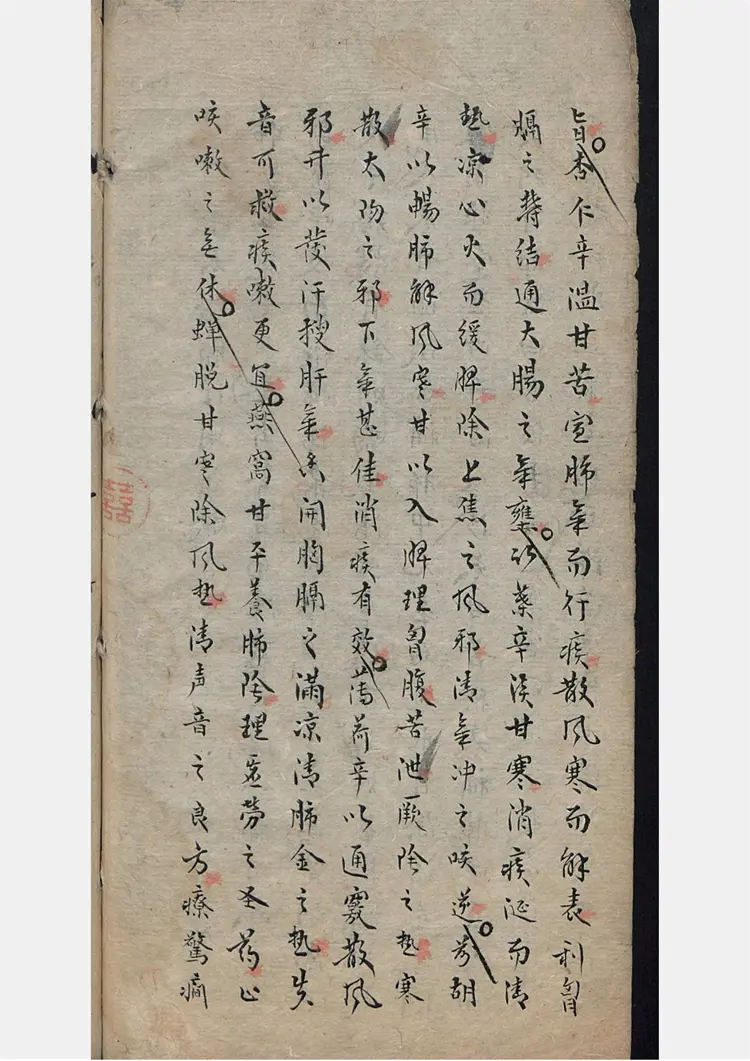 旨杏仁辛温甘苦宣肺氣而行痰散风寒而解表利胷
膈之滞结通大腸之氣壅前葉辛淡甘寒消痰涎而清
热凉心火而缓脾除上焦之风邪清氣冲之咳逆前胡
辛以暢肺解风寒甘以入脾理胷腹苦泄厥陰之热寒
散太阳之邪下氣甚佳消痰有效薄荷辛以通竅散风
邪升以發汗搜肝氣以開胸膈之滿凉清肺金之热失
音可救痰嗽更宜燕窩甘平養肺陰理虚劳之圣药止
咳嗽之无休蝉脱甘寒除风热清声音之良方療驚癎
囍